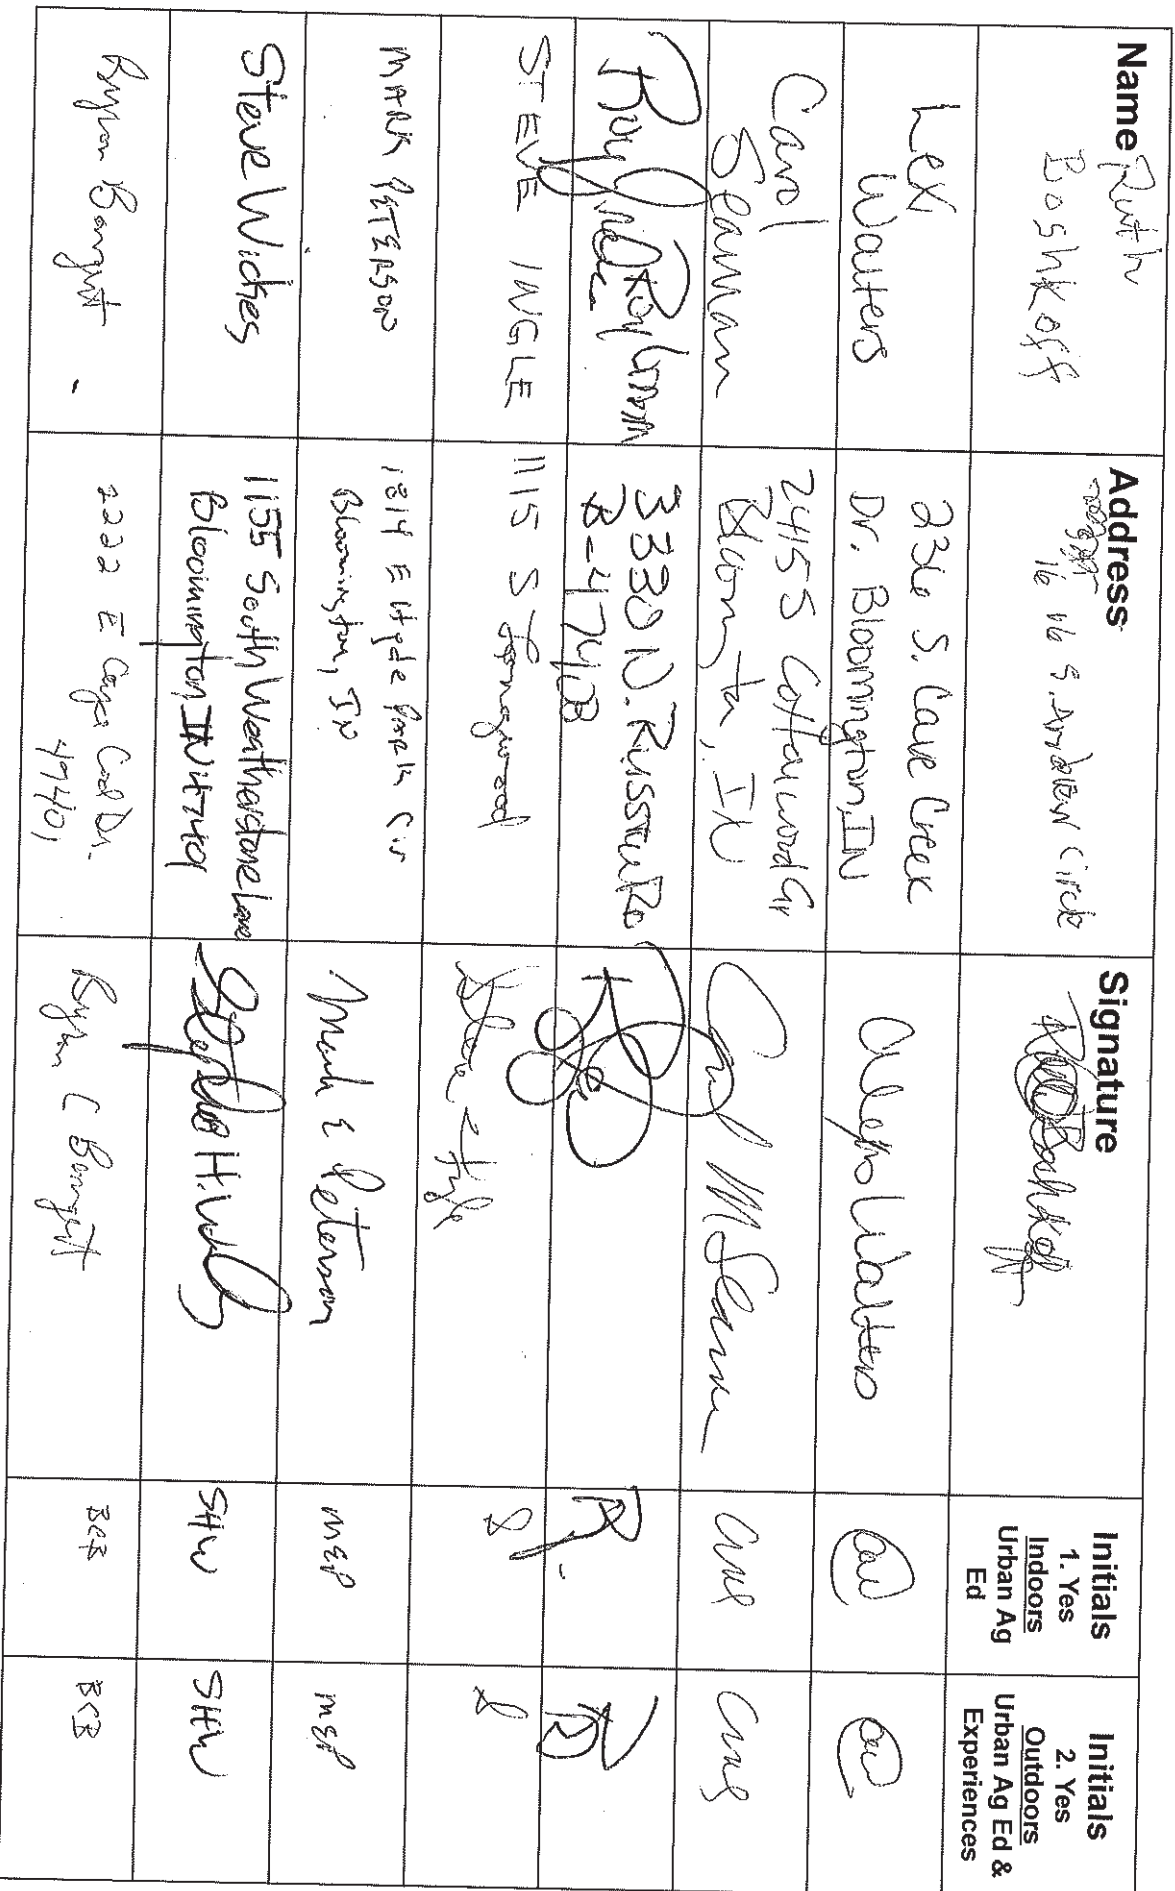 Name
Address
Signature
Initials
1. Yes
Indoors
Urban Ag
Ed
Initials
2. Yes
Outdoors
Urban Ag Ed &
Experiences
Ruth
Boshkoff
S. Andrew Circle
Lex
Walters
2316 S. Cave Creek
Dr. Bloomington, IN
Carol
Seaman
2455 Cottonwood Cir
IN
Carol M Seaman
CMS
CMS
330 N. Russell Rd
B-47408
STEVE INGLE
1115 S Longwood
MARK PETERSON
1814 E Hyde Park Cir
Bloomington, IN
Mark E Peterson
MEP
MEP
Steve Wides
1155 South Weatherstone Lane
Bloomington IN 47401
SHW
SHW
Byron Bangert
2222 E Cape Cod Dr.
47401
Byron C Bangert
BCB
BCB